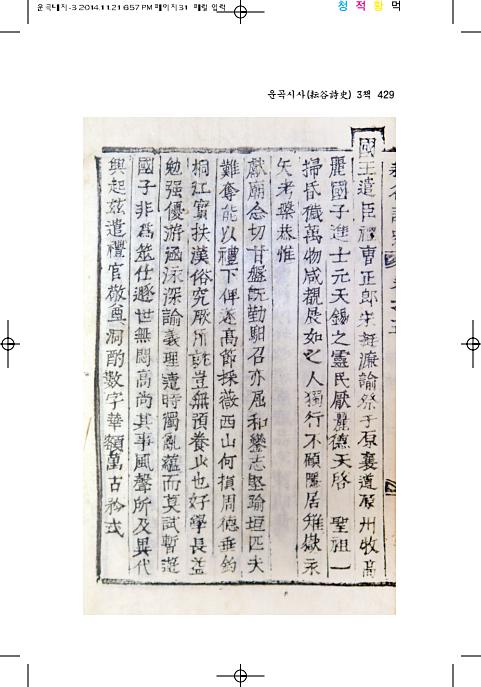 운곡시사(耘谷詩史) 3책 429
청 적 황 먹
國王遣臣禮曹正郞宋挺濂諭祭于原襄道原州牧高
麗國子進士元天錫之靈民厭麗德天啓 聖祖一
掃昏穢萬物咸覩展如之人獨行不顧隱居雉嶽永
矢考槃恭惟
獻廟念切甘盤旣勤馹召亦屈和鑾志堅踰垣匹夫
難奪能以禮下俾遂高節採薇西山何損周德垂釣
桐江實扶漢俗究厥所就豈無預養少也好學長益
勉强優游涵泳深諭義理遭時獨亂蘊而莫試暫遊
國子非爲筮仕遯世無悶高尙其事風聲所及異代
興起玆遣禮官敬奠洞酌數字華額萬古矜式